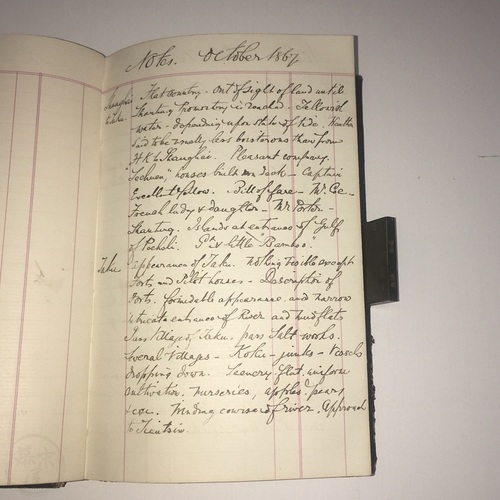 Notes. October 1867
Shanghai Flat country. Out of sight of land until
to Taku. Shantung Promontory is reached. Yellowish
water - depending upon state of tide. Weather
said to be usually less boisterous than from
H.K. to Shanghae. Pleasant company.
houses built on deck - Captain
Excellent fellow. Bill of fare - Mr.
French lady & daughter - Mr. Porter -
Shantung. Islands at entrance of Gulf
of Pecheli. & little "Bamboo".
Taku appearance of Taku. Nothing visible except
Forts and Pilot houses - Description of
Forts. formidable appearance and narrow
intricate entrance of River and mudflats
Pass village of Taku, pass Salt-works.
Several villages - - junks - vessels
dropping down. Scenery flat, uniform
cultivation. Nurseries, apples, pears
&c &c. Winding course of river. Approach
to Tientsin.